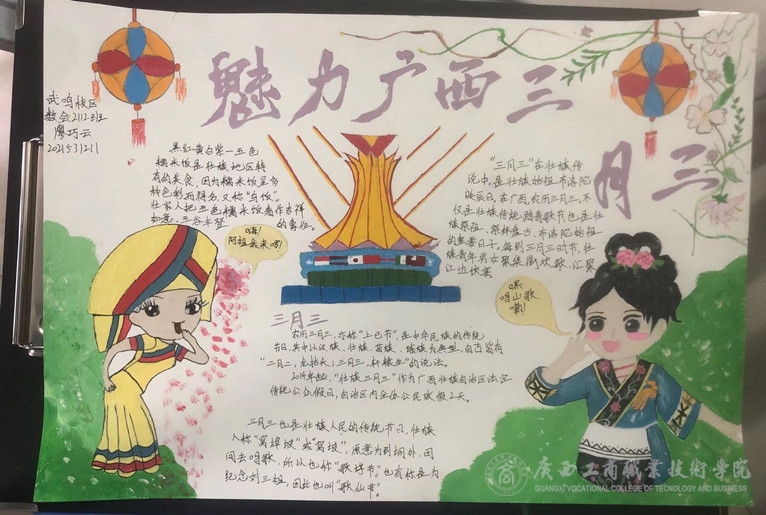 魅力广西三
月三
武鸣校区
数会2112班
廖巧云
2021531211
黑红黄白紫一五色
糯米饭是壮族地区特
有的美食，因为糯米饭呈五
种色彩而得名，又称"乌饭"。
壮家人把五色糯米饭看作吉祥
如意、五谷丰登的象征。
嘿!
阿妹我来啦!
"三月三"在壮族传
说中，是壮族始祖布洛陀
诞辰日，在广西，农历三月三，不
仅是壮族传统踏青歌节，也是壮
族祭祖、祭拜盘古、布洛陀始祖
的重要日子。每到三月三时节，壮
族青年男女聚集街欢歌，汇聚
江边饮宴
嘿
唱山歌
嘞!
三月三
农历三月三，亦称"上巳节"，是中华民族的传统
节日，其中以汉族、壮族、苗族、瑶族为典型，自古就有
"二月二，龙抬头；三月三，轩辕生"的说法。
2014年起，"壮族三月三"作为广西壮族自治区法定
传统公众假日，自治区内全体公民放假2天。
三月三也是壮族人民的传统节日，壮族
人称"窝埠坡"或"窝坡"，原意为到垌外、田
间去唱歌，所以也称"歌圩节"，也有你是为
纪念刘三姐，因此也叫"歌仙节"。
广西工商职业技术学院
GUANGXI VOCATIONAL COLLEGE OF TECNOLOGY AND BUSINESS